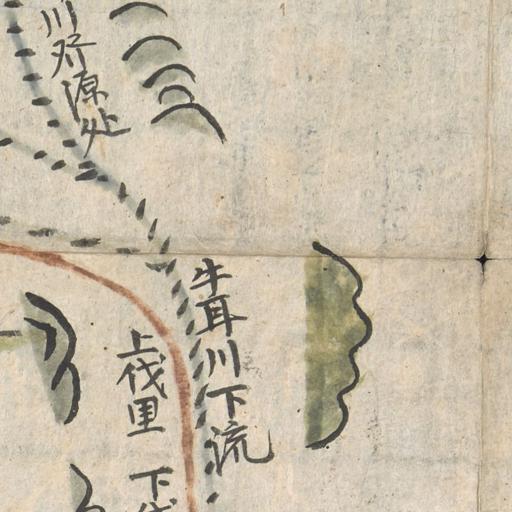 川發源处
牛耳川下流
上伐里
下伐